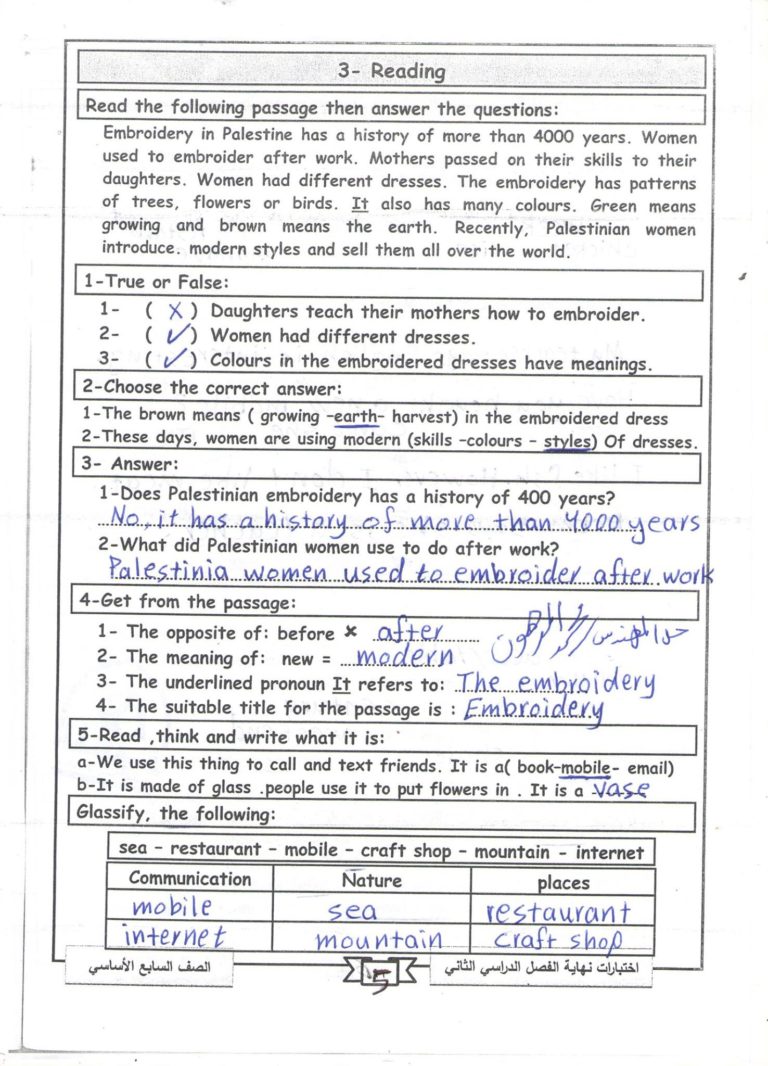 3- Reading
Read the following passage then answer the questions:
Embroidery in Palestine has a history of more than 4000 years. Women
used to embroider after work. Mothers passed on their skills to their
daughters. Women had different dresses. The embroidery has patterns
of trees, flowers or birds. It also has many colours. Green means
growing and brown means the earth. Recently, Palestinian women
introduce. modern styles and sell them all over the world.
1-True or False:
1- ( X ) Daughters teach their mothers how to embroider.
2- ( ✓ ) Women had different dresses.
3- ( ✓ ) Colours in the embroidered dresses have meanings.
2-Choose the correct answer:
1-The brown means ( growing -earth- harvest) in the embroidered dress
2-These days, women are using modern (skills -colours - styles) Of dresses.
3- Answer:
1-Does Palestinian embroidery has a history of 400 years?
No, it has a history of more than 4000 years
2-What did Palestinian women use to do after work?
Palestinia women used to embroider after work
4-Get from the passage:
1- The opposite of: before × after
2- The meaning of: new = modern
3- The underlined pronoun It refers to: The embroidery
4- The suitable title for the passage is : Embroidery
5-Read ,think and write what it is:
a-We use this thing to call and text friends. It is a( book-mobile- email)
b-It is made of glass .people use it to put flowers in . It is a vase
Glassify, the following:
sea - restaurant - mobile - craft shop - mountain - internet
Communication Nature places
mobile sea restaurant
internet mountain craft shop
الصف السابع الأساسي 5 اختبارات نهاية الفصل الدراسي الثاني